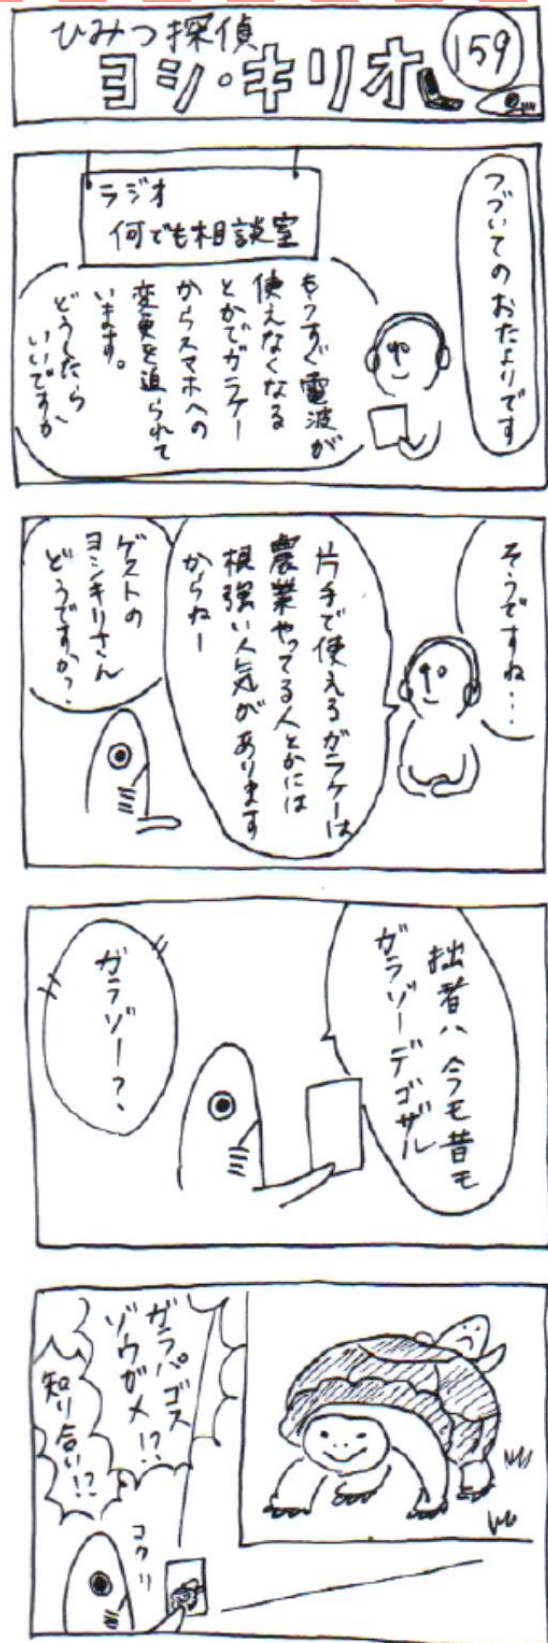 ひみつ探偵
ヨシ・キリオ
159
つづいてのおたよりです
ラジオ
何でも相談室
もうすぐ電波が
使えなくなる
とかでガラケー
からスマホへの
変更を迫られて
います。
どうしたら
いいですか
そうですね…
片手で使えるガラケーは
農業やってる人とかには
根強い人気があります
からねー
ゲストの
ヨシキリさん
どうですか?
拙者ハ今モ昔モ
ガラゾーデゴザル
ガラゾー?、
ガラパゴス
ゾウガメ!?
知り合い!?
コクリ